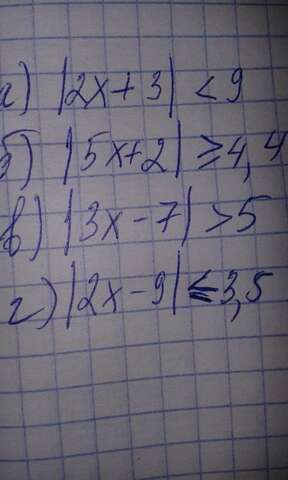 а) |2x+3| < 9
б) |5x+2| ≥ 4,4
в) |3x-7| > 5
г) |2x-9| ≤ 3,5